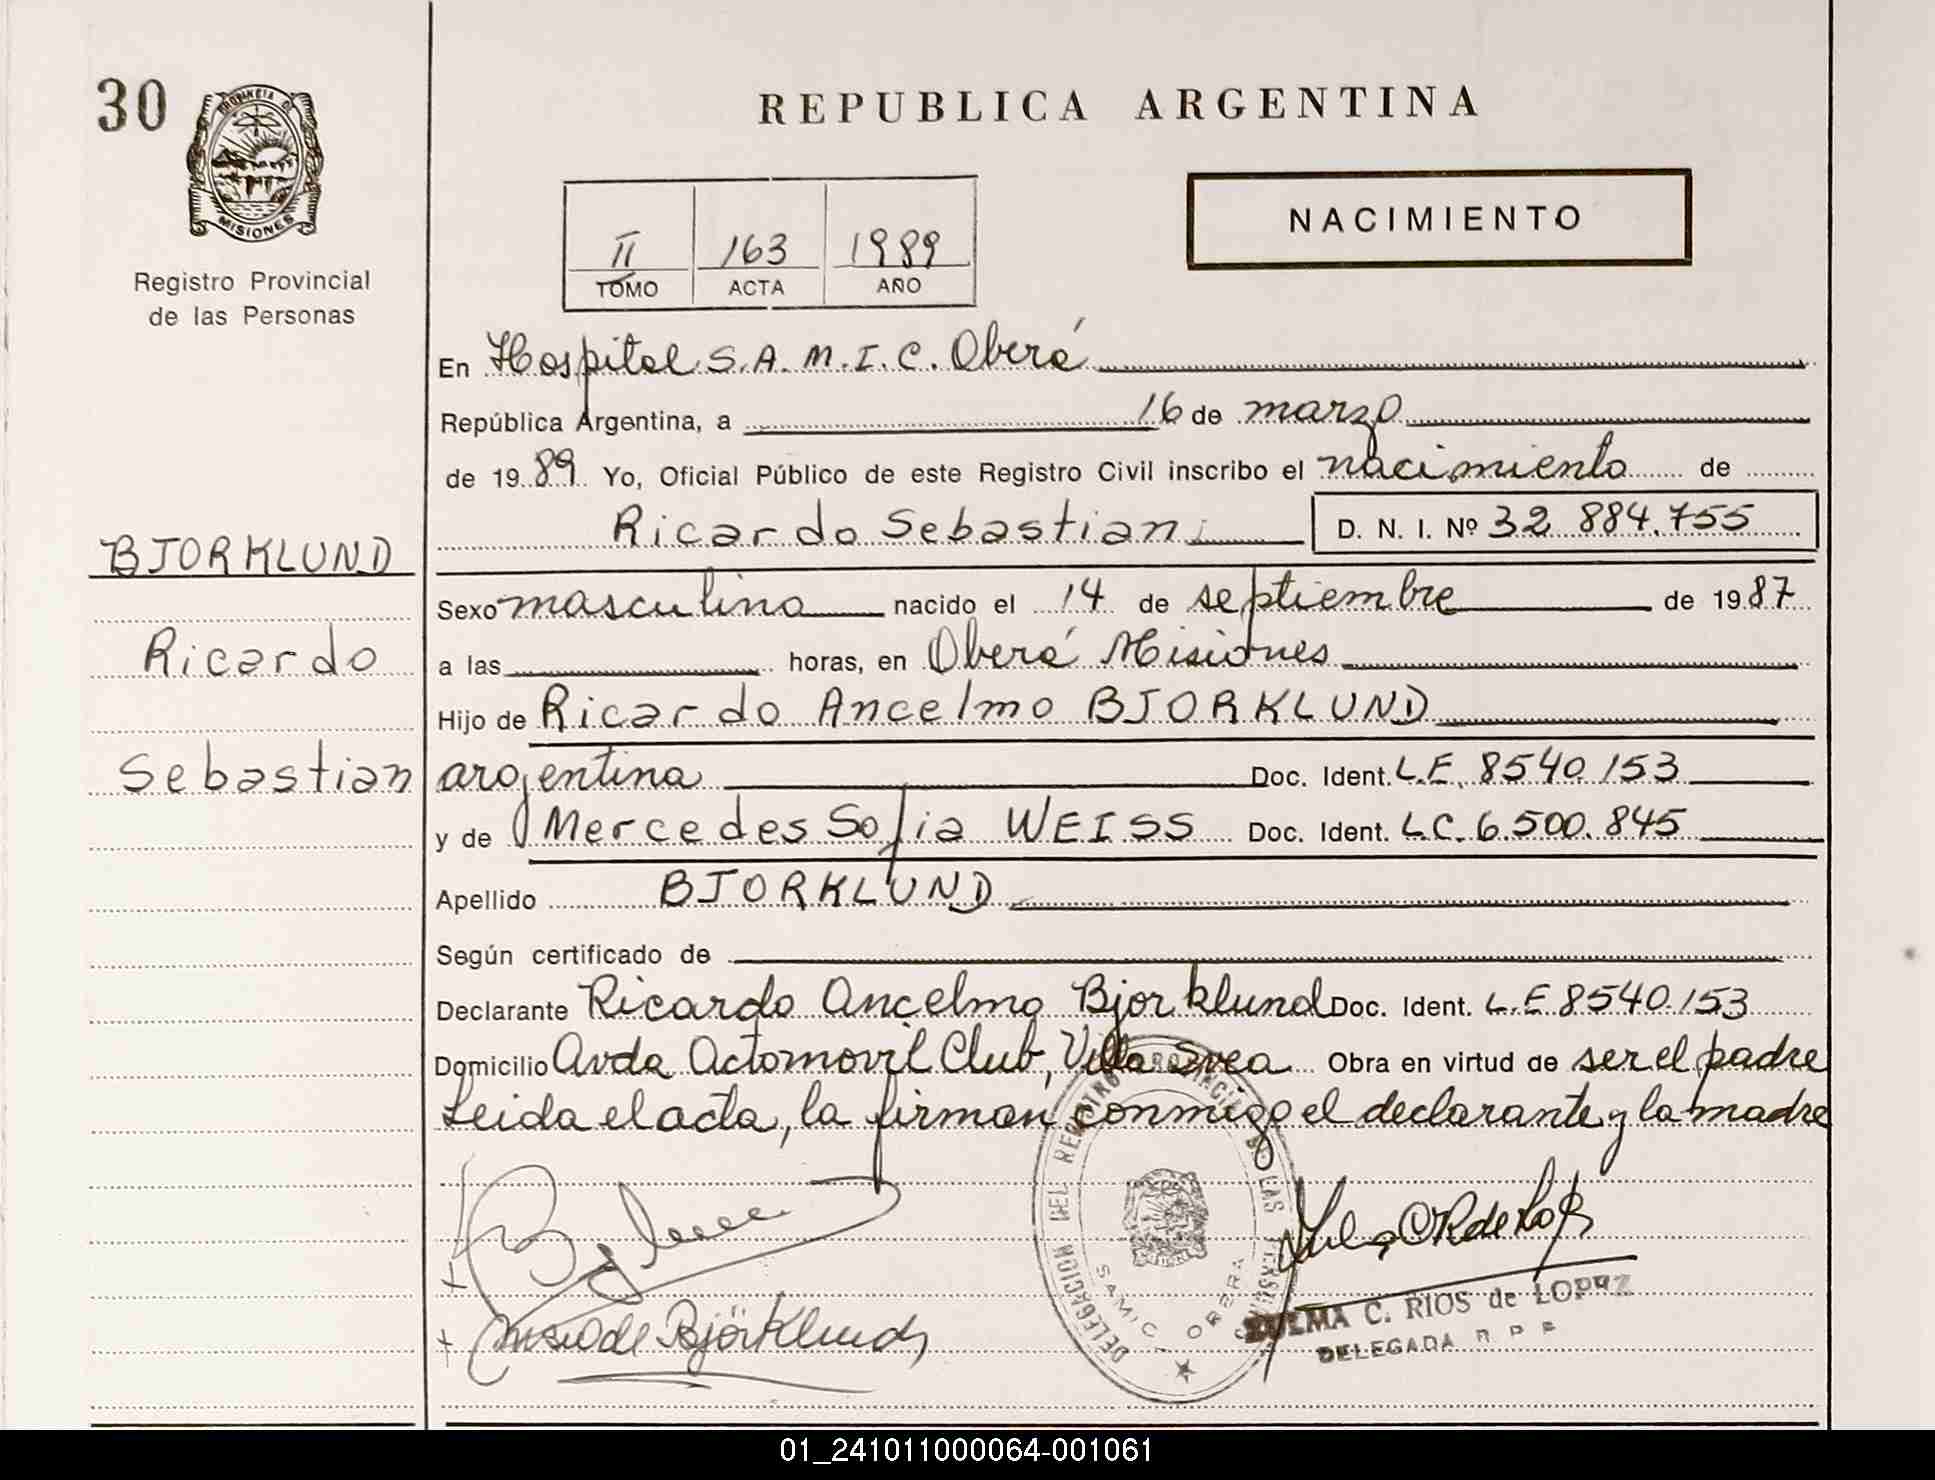 30
PROVINCIA D
MISIONES
Registro Provincial
de las Personas
BJORKLUND
Ricardo
Sebastian
REPUBLICA ARGENTINA
NACIMIENTO
II 163 1989
TOMO ACTA AÑO
En Hospital S.A.M.I.C. Oberá
República Argentina, a 16 de marzo
de 1989 Yo, Oficial Público de este Registro Civil inscribo el nacimiento de
Ricardo Sebastian D. N. I. Nº 32 884.755
Sexo masculino nacido el 14 de septiembre de 1987
a las horas, en Oberá Misiones
Hijo de Ricardo Ancelmo BJORKLUND
argentina Doc. Ident. L.E. 8540.153
y de Mercedes Sofia WEISS Doc. Ident. L.C. 6.500.845
Apellido BJORKLUND
Según certificado de
Declarante Ricardo Ancelmo Bjorklund Doc. Ident. L.E 8540.153
Domicilio Avda Actomovil Club, Villa Svea Obra en virtud de ser el padre
Leida el acta, la firman conmigo el declarante y la madre
DELEGACION DEL REGISTRO PROVINCIAL DE LAS PERSONAS
SAMIC OBERA
de Björklund
ZULMA C. RIOS de LOPEZ
DELEGADA R P P
01_241011000064-001061